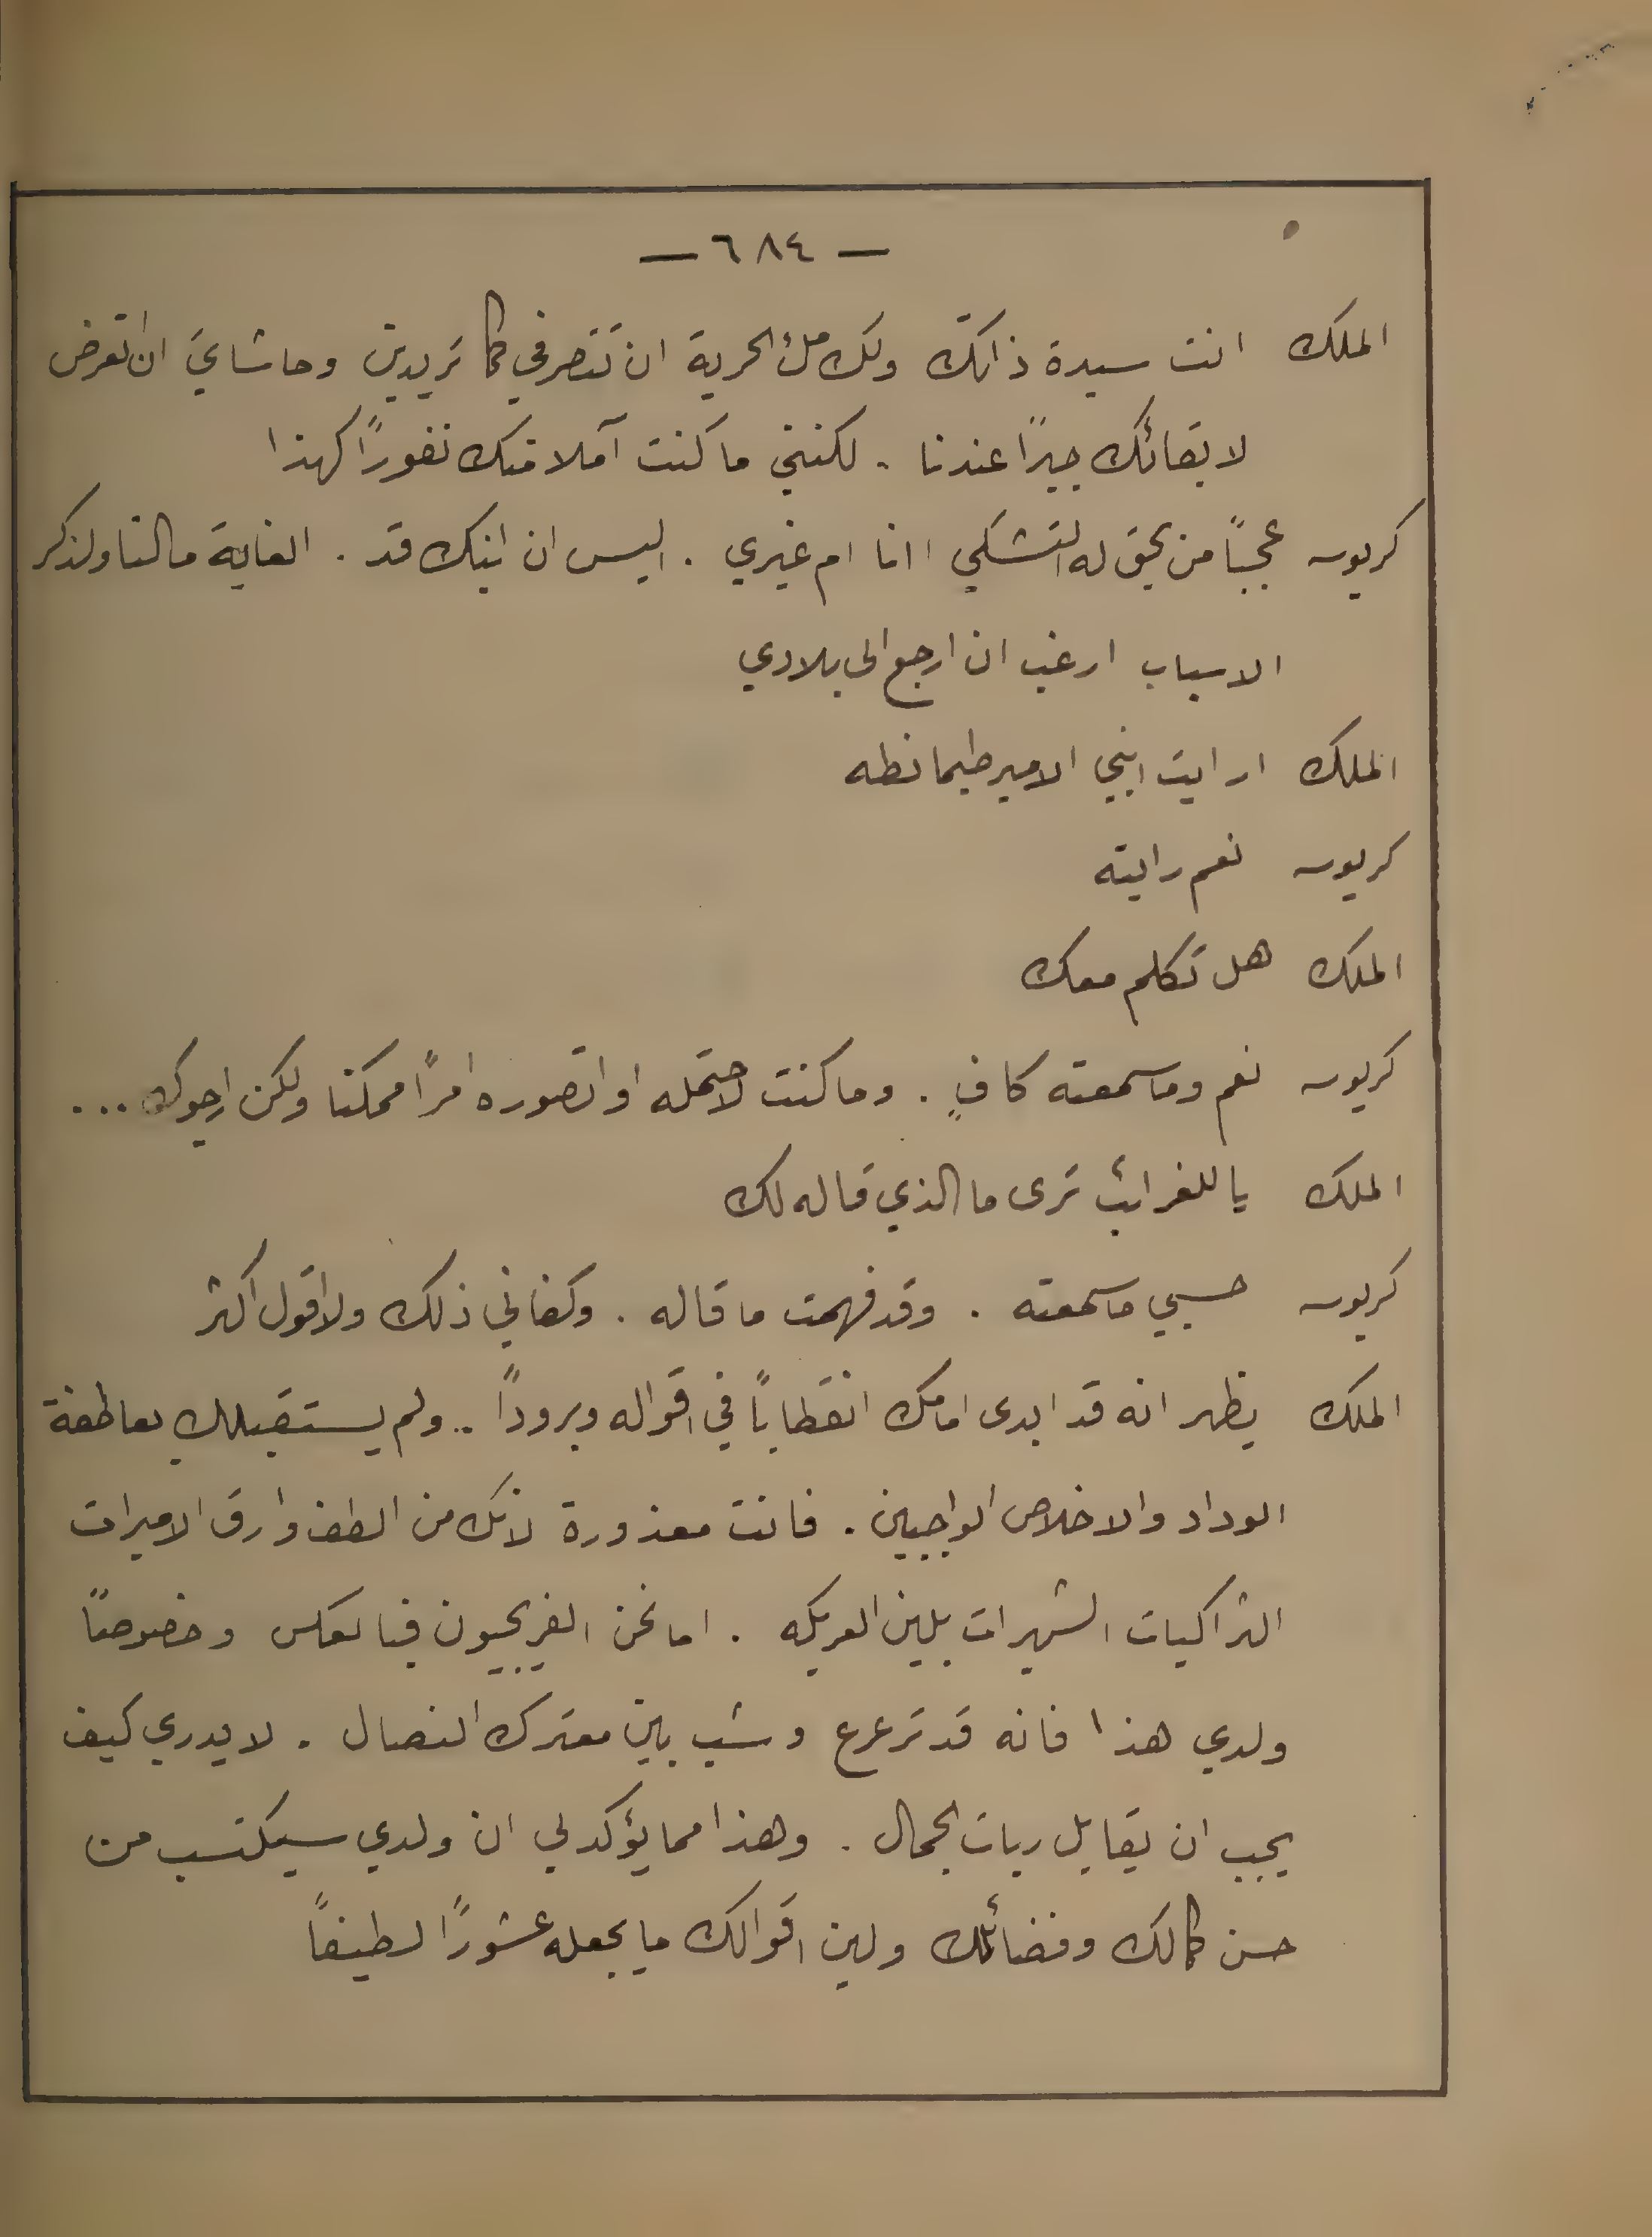 — ٦٨٤ —
الملك انت سيدة ذاتك ولك ملء الحرية ان تتصرفي كما تريدين وحاشاي ان اتعرض
لابقائك جبرًا عندنا . لكنني ما كنت آملا منك نفورًا كهذا
كريوسه عجبًا من يحق له التشكي اانا ام غيري . اليس ان ابنك قد . الغاية مالنا ولذكر
الاسباب ارغب ان ارجع الى بلادي
الملك ارايت ابني الامير طيمانطه
كريوسه نعم رايته
الملك هل تكلم معك
كريوسه نعم وما سمعته كافٍ . وما كنت لاحتمله او اتصوره امرًا ممكنا ولكن ارجوك ...
الملك يا للغرائب ترى ما الذي قاله لك
كريوسه حسبي ما سمعته . وقد فهمت ما قاله . وكفاني ذلك ولا اقول اكثر
الملك يظهر انه قد ابدى امامك انقطابًا في اقواله وبرودًا .. ولم يستقبلك بعاطفة
الوداد والاخلاص الواجبين . فانت معذورة لانك من الطف وارق الاميرات
التراكيات الشهيرات بلين العريكه . اما نحن الفريجيون فبالعكس وخصوصًا
ولدي هذا فانه قد ترعرع وشب بين معترك النصال . لا يدري كيف
يجب ان يقابل ربات الجمال . وهذا مما يؤكد لي ان ولدي سيكتسب من
حسن كمالك وفضائلك ولين اقوالك ما يجعله عشورًا لطيفًا